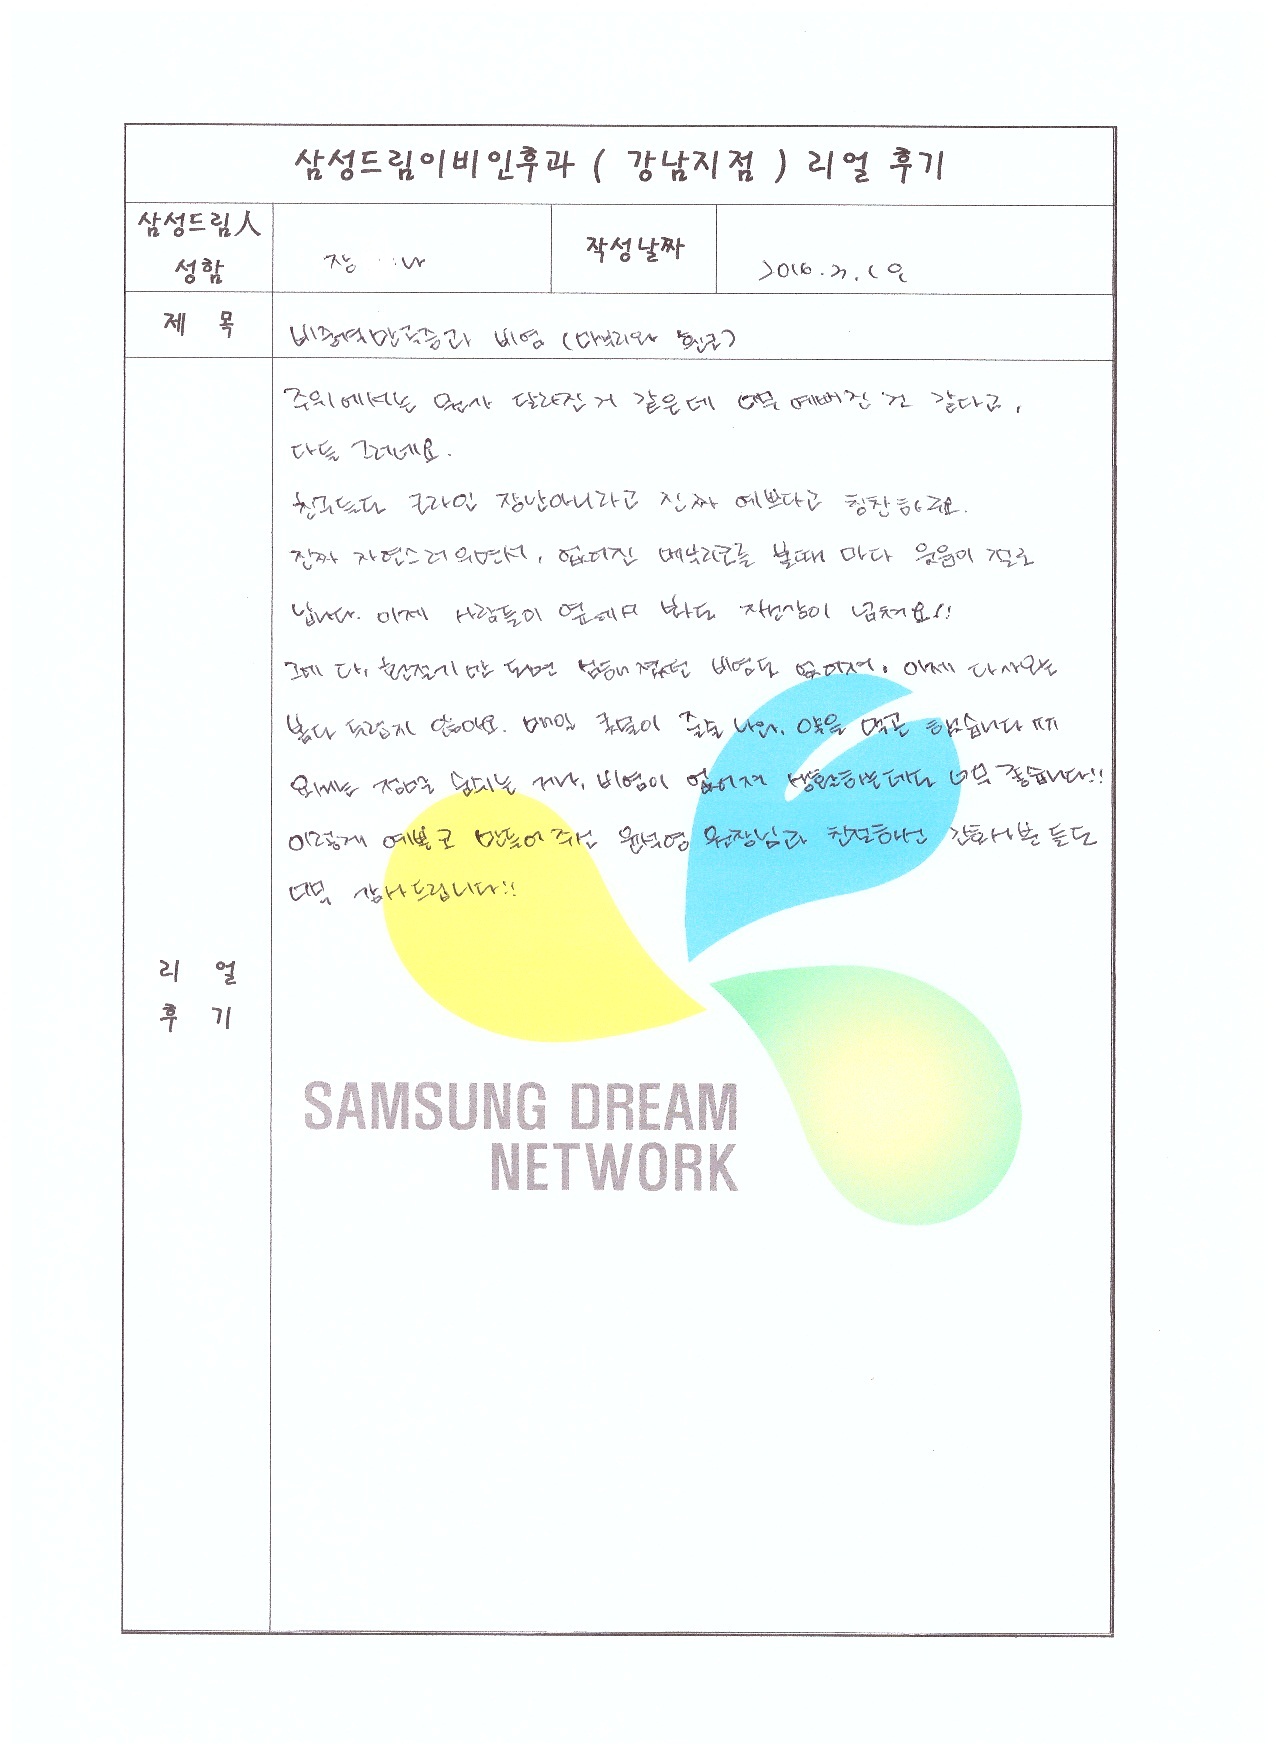 삼성드림이비인후과 ( 강남지점 ) 리얼 후기
삼성드림人
성함
장
작성날짜
제 목
비중격만곡증과 비염 (매부리와 휜코)
주위에서는 뭔가 달라진거 같은데 너무 예뻐진 건 같다고,
다들 그러네요.
친구들도 코라인 장난아니라고 진짜 예쁘다고 칭찬하구요.
진짜 자연스러우면서, 없어진 매부리코를 볼때 마다 웃음이 절로
납니다. 이제 사람들이 옆에서 봐도 자신감이 넘쳐요!!
게다, 환절기만 되면 심해졌던 비염도 없어져, 이제 다시오는
봄도 두렵지 않아요. 매일 콧물이 줄줄 나와, 약을 먹곤 했습니다 ㅠㅠ
요새는 정말로 숨쉬는 거나, 비염이 없어져 생활하는데도 너무 좋습니다!!
이렇게 예쁜 코 만들어주신 원장님과 친절하신 간호사분들도
너무 감사드립니다!!
리 얼
후 기
SAMSUNG DREAM
NETWORK